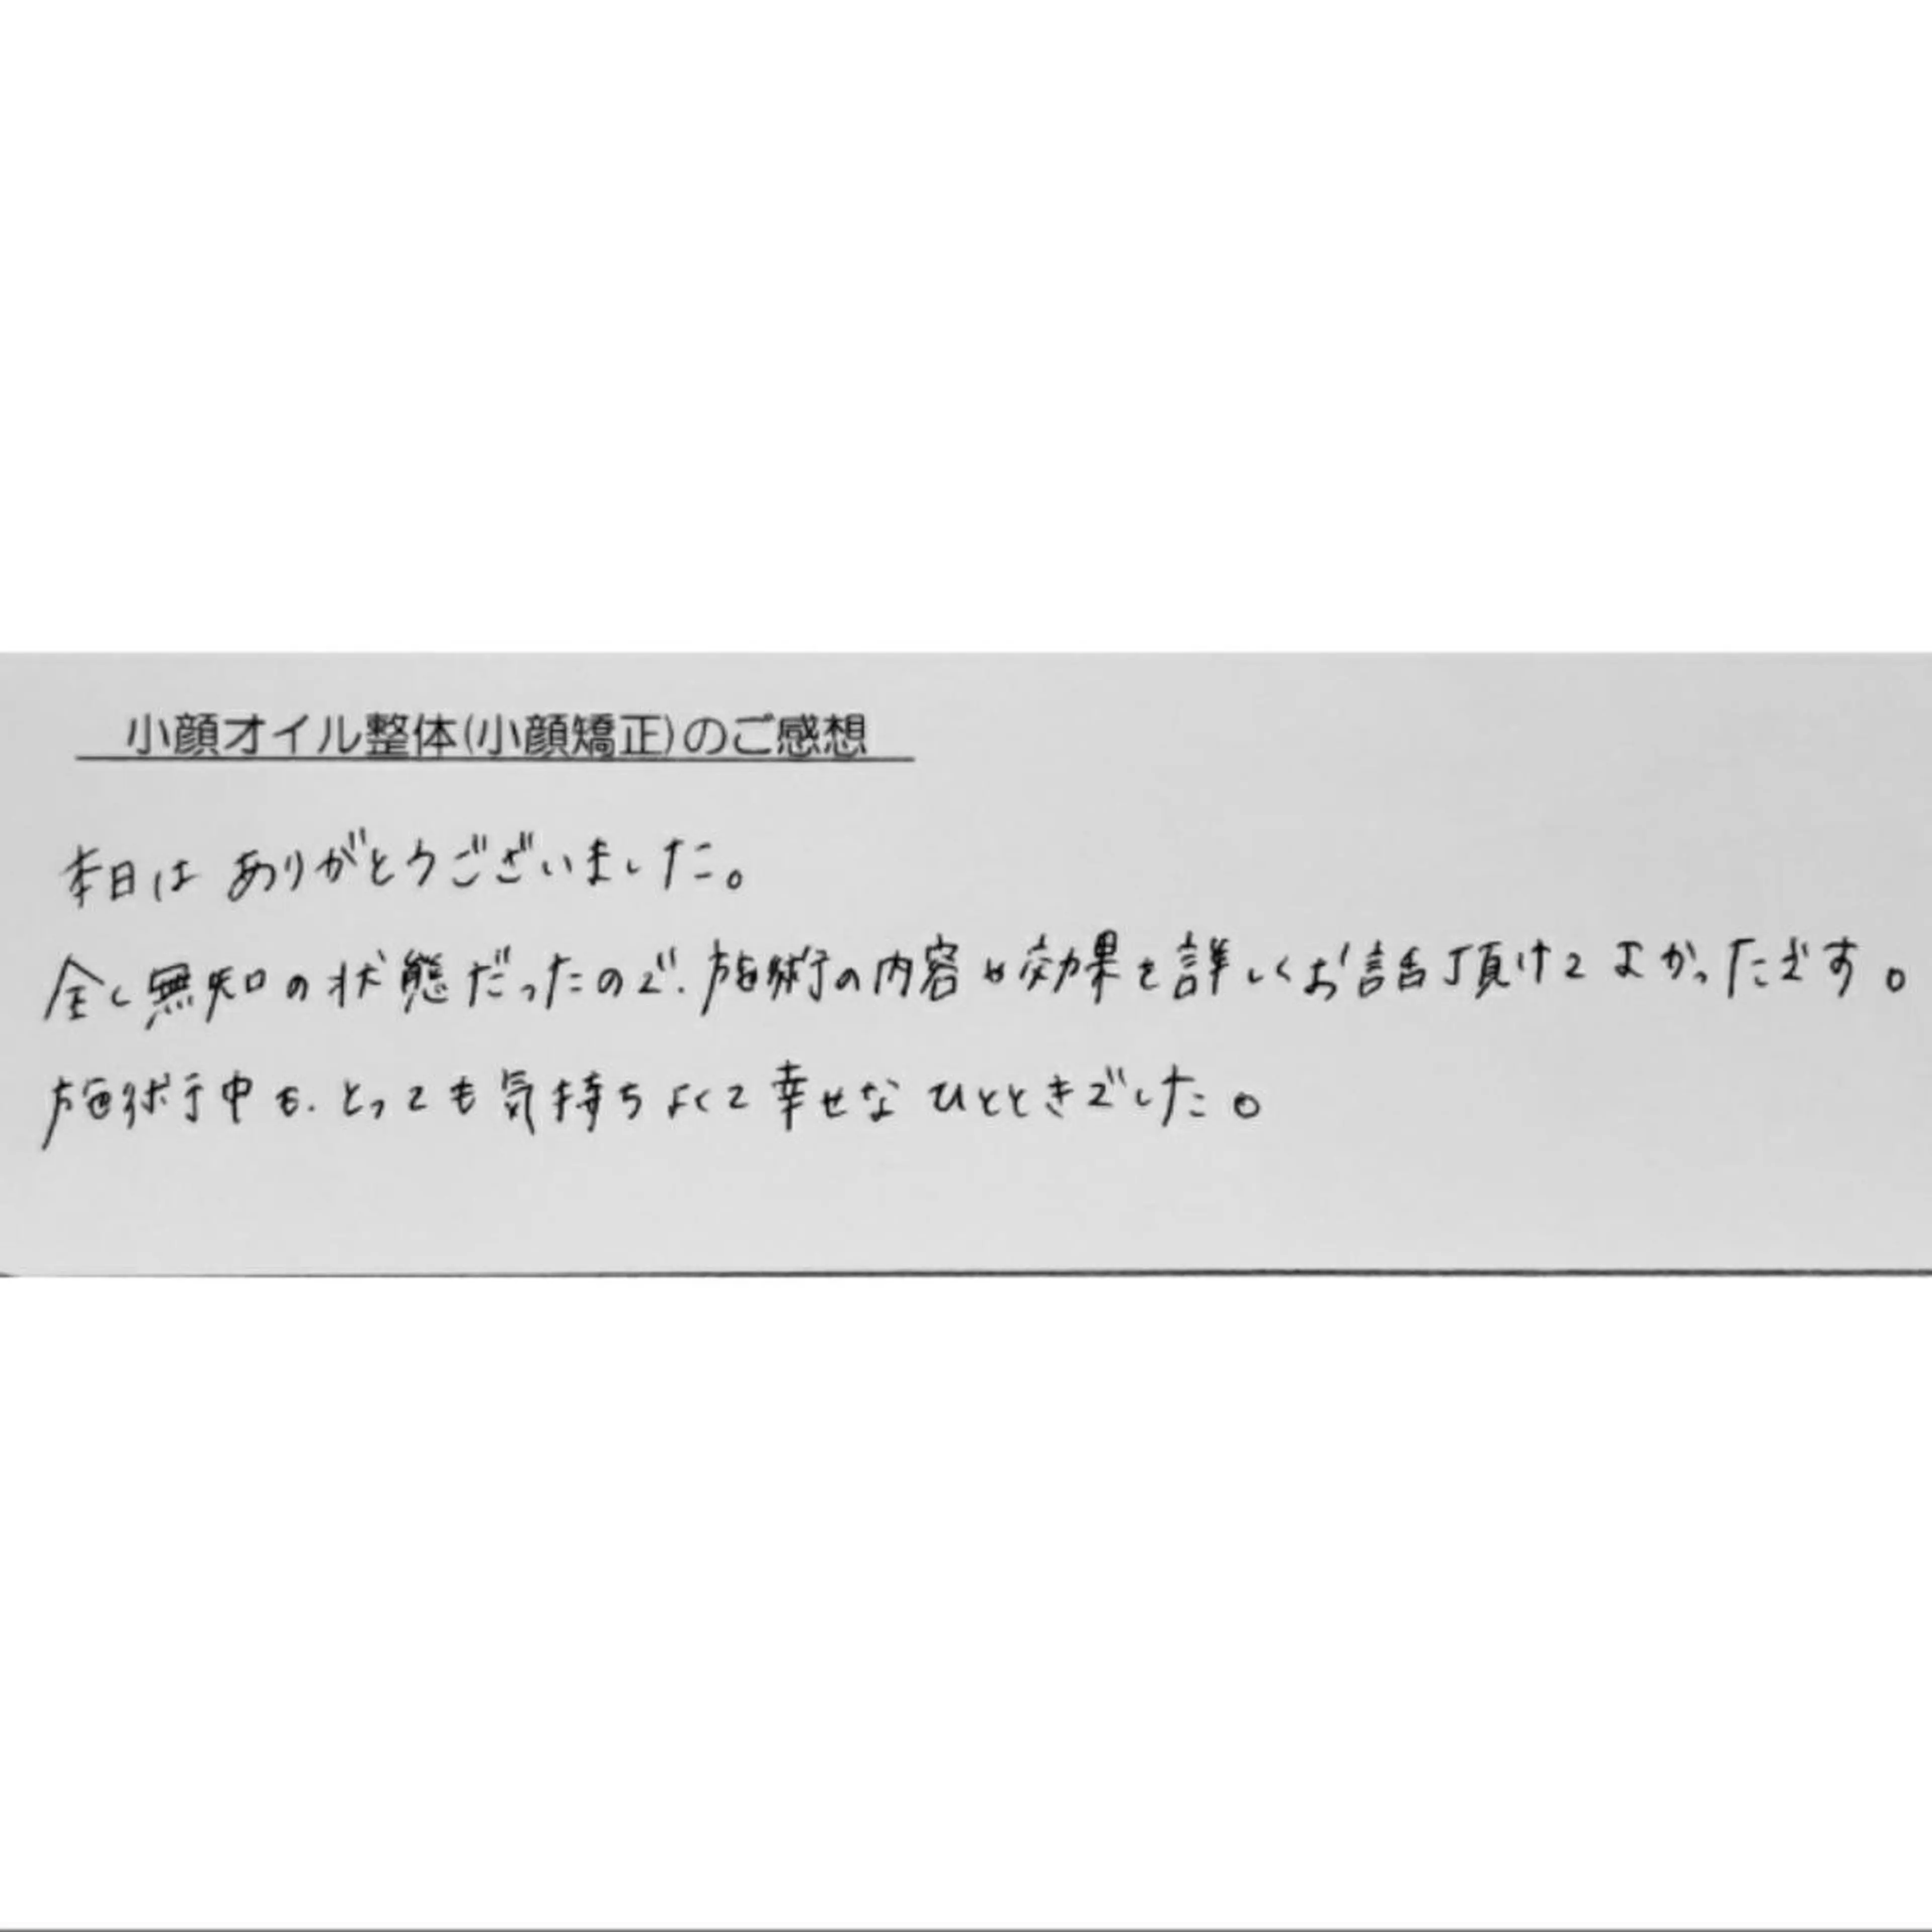 小顔オイル整体(小顔矯正)のご感想
本日は ありがとうございました。
全く無知の状態だったので、施術の内容や効果を詳しくお話頂けて よかったです。
施術中も、とっても気持ちよくて幸せな ひとときでした。